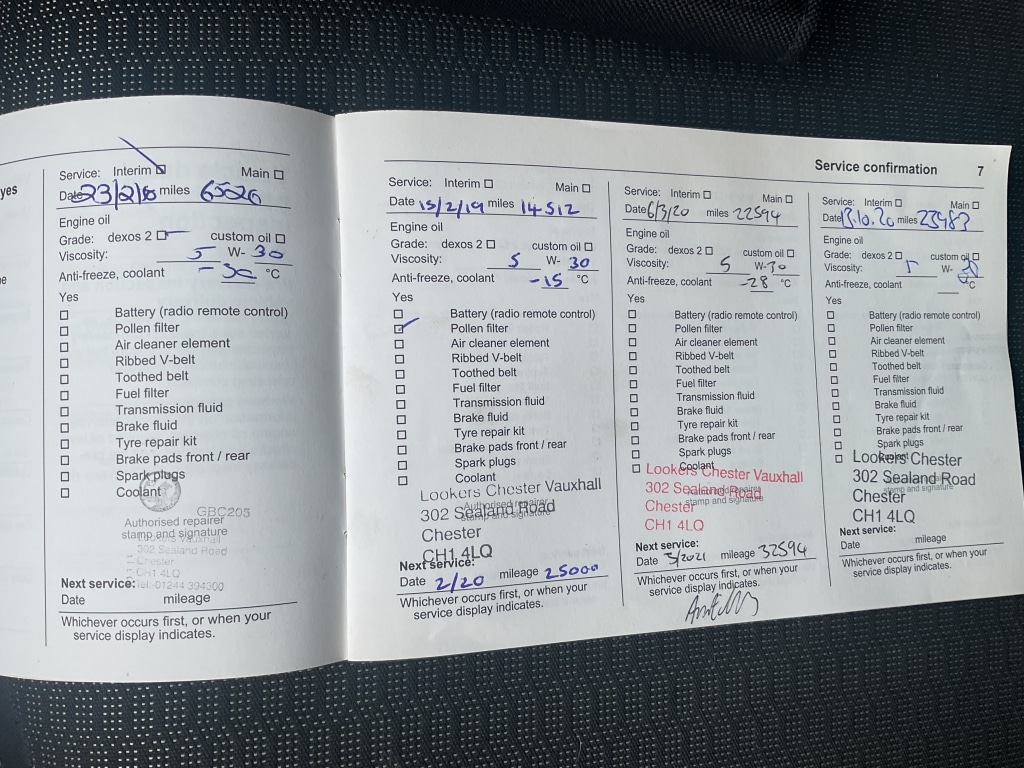 yes
e
Service: Interim Main
Date 23/2/18 miles
Engine oil
Grade: dexos 2 custom oil
Viscosity: 5 W- 30
Anti-freeze, coolant -30 °C
Yes
Battery (radio remote control)
Pollen filter
Air cleaner element
Ribbed V-belt
Toothed belt
Fuel filter
Transmission fluid
Brake fluid
Tyre repair kit
Brake pads front / rear
Spark plugs
Coolant
GBC205
Authorised repairer
stamp and signature
Lookers Vauxhall
302 Sealand Road
Chester
CH1 4LQ
Tel: 01244 394300
Next service:
Date mileage
Whichever occurs first, or when your
service display indicates.
Service confirmation 7
Service: Interim Main
Date 15/2/19 miles 14512
Engine oil
Grade: dexos 2 custom oil
Viscosity: 5 W- 30
Anti-freeze, coolant -15 °C
Yes
Battery (radio remote control)
Pollen filter
Air cleaner element
Ribbed V-belt
Toothed belt
Fuel filter
Transmission fluid
Brake fluid
Tyre repair kit
Brake pads front / rear
Spark plugs
Coolant
Lookers Chester Vauxhall
Authorised repairer
302 Sealand Road
stamp and signature
Chester
CH1 4LQ
Next service:
Date 2/20 mileage 25000
Whichever occurs first, or when your
service display indicates.
Service: Interim Main
Date 6/3/20 miles 22594
Engine oil
Grade: dexos 2 custom oil
Viscosity: 5 W-30
Anti-freeze, coolant -28 °C
Yes
Battery (radio remote control)
Pollen filter
Air cleaner element
Ribbed V-belt
Toothed belt
Fuel filter
Transmission fluid
Brake fluid
Tyre repair kit
Brake pads front / rear
Spark plugs
Coolant
Lookers Chester Vauxhall
302 Sealand Road
Authorised repairer
stamp and signature
Chester
CH1 4LQ
Next service:
Date 3/2021 mileage 32594
Whichever occurs first, or when your
service display indicates.
Service: Interim Main
Date 13.10.20 miles 23483
Engine oil
Grade: dexos 2 custom oil
Viscosity: W-
Anti-freeze, coolant °C
Yes
Battery (radio remote control)
Pollen filter
Air cleaner element
Ribbed V-belt
Toothed belt
Fuel filter
Transmission fluid
Brake fluid
Tyre repair kit
Brake pads front / rear
Spark plugs
Coolant
Lookers Chester
302 Sealand Road
stamp and signature
Chester
CH1 4LQ
Next service:
Date mileage
Whichever occurs first, or when your
service display indicates.